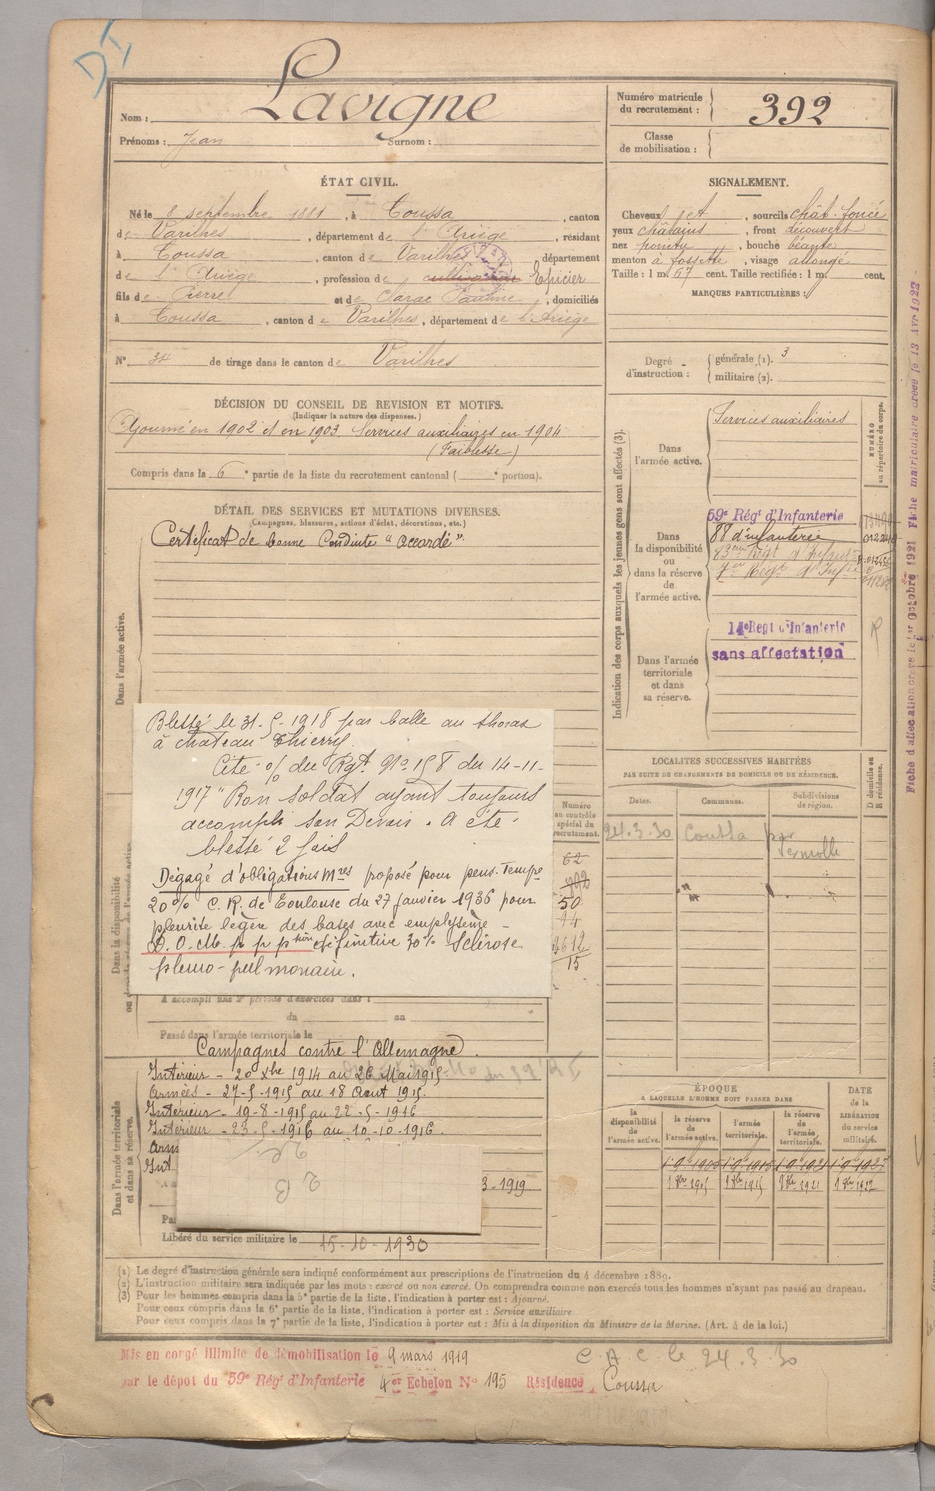 DI
Nom : Lavigne
Prénoms : Jean Surnom :
Numéro matricule du recrutement : 392
Classe de mobilisation :
ÉTAT CIVIL.
Né le 8 septembre 1881, à Coussa, canton
de Varilhes, département de l'Ariège, résidant
à Coussa, canton de Varilhes, département
de l'Ariège, profession de cultivateur Epicier
fils de Pierre et de Clarac Pauline, domiciliés
à Coussa, canton de Varilhes, département de l'Ariège
N° 34 de tirage dans le canton de Varilhes
SIGNALEMENT.
Cheveux et, sourcils chât. foncé
yeux châtains, front découvert
nez pointu, bouche béante
menton à fossette, visage allongé
Taille : 1 m. 67 cent. Taille rectifiée : 1 m. cent.
MARQUES PARTICULIÈRES :
Degré d'instruction : générale (1). 3
militaire (2).
DÉCISION DU CONSEIL DE REVISION ET MOTIFS.
(Indiquer la nature des dispenses.)
Ajourné en 1902 et en 1903. Services auxiliaires en 1904
(Faiblesse)
Compris dans la 6e partie de la liste du recrutement cantonal ( e portion).
DÉTAIL DES SERVICES ET MUTATIONS DIVERSES.
(Campagnes, blessures, actions d'éclat, décorations, etc.)
Certificat de bonne Conduite "accordé"
Dans l'armée active.
Indication des corps auxquels les jeunes gens sont affectés (3).
Dans l'armée active.
Services auxiliaires
NUMÉRO au répertoire du corps.
Dans la disponibilité ou dans la réserve de l'armée active.
59e Régt d'Infanterie
88 d'infanterie
83eme Régt d'Infant
7er Régt d'Infie
Dans l'armée territoriale et dans sa réserve.
14e Régt d'Infanterie
sans affectation
R
Fiche d'affectation créée le 1er Octobre 1921 Fiche matriculaire créée le 13 Avr 1922
Blessé le 31-5-1918 par balle au thorax
à Chateau Thierry.
Cité o/ du Rgt N° 158 du 14-11-
1917 "Bon soldat ayant toujours
accompli son Devoir. A été
blessé 2 fois
Dégagé d'obligations Mres proposé pour pens. tempre
20% C.R. de Toulouse du 27 janvier 1936 pour
pleurite légère des bases avec emphysème -
D.O.M. p r p ption définitive 30% Sclérose
pleuro-pulmonaire.
Numéro au contrôle spécial du recrutement.
62
50
44
4612
15
LOCALITÉS SUCCESSIVES HABITÉES
PAR SUITE DE CHANGEMENTS DE DOMICILE OU DE RÉSIDENCE.
Dates. Communes. Subdivisions de région. D domicile ou R résidence.
24.3.30 Coussa par
A accompli une 2e période d'exercices dans l
du au
Passé dans l'armée territoriale le
Campagnes contre l'Allemagne.
Intérieur - 20 Xbre 1914 au 26 Mai 1915
Armées - 27-5-1915 au 18 Août 1915.
Intérieur - 19-8-1915 au 22-5-1916
Intérieur - 23-5-1916 au 10-10-1916.
Arm
Int
2 B
3-1919
Libéré du service militaire le 15-10-1930
Dans l'armée territoriale et dans sa réserve.
ÉPOQUE
À LAQUELLE L'HOMME DOIT PASSER DANS
la disponibilité de l'armée active. la réserve de l'armée active. l'armée territoriale. la réserve de l'armée territoriale.
DATE de la LIBÉRATION du service militaire.
1 9bre 1905 1 8bre 1915 1 8bre 1921 1 8bre 1927
(1) Le degré d'instruction générale sera indiqué conformément aux prescriptions de l'instruction du 4 décembre 1889.
(2) L'instruction militaire sera indiquée par les mots : exercé ou non exercé. On comprendra comme non exercés tous les hommes n'ayant pas passé au drapeau.
(3) Pour les hommes compris dans la 5e partie de la liste, l'indication à porter est : Ajourné.
Pour ceux compris dans la 6e partie de la liste, l'indication à porter est : Service auxiliaire
Pour ceux compris dans la 7e partie de la liste, l'indication à porter est : Mis à la disposition du Ministre de la Marine. (Art. 4 de la loi.)
Mis en congé illimité de démobilisation le 9 mars 1919
par le dépôt du 59e Régt d'Infanterie 4er Echelon N° 195 Résidence, Coussa
C A C le 24.3.30